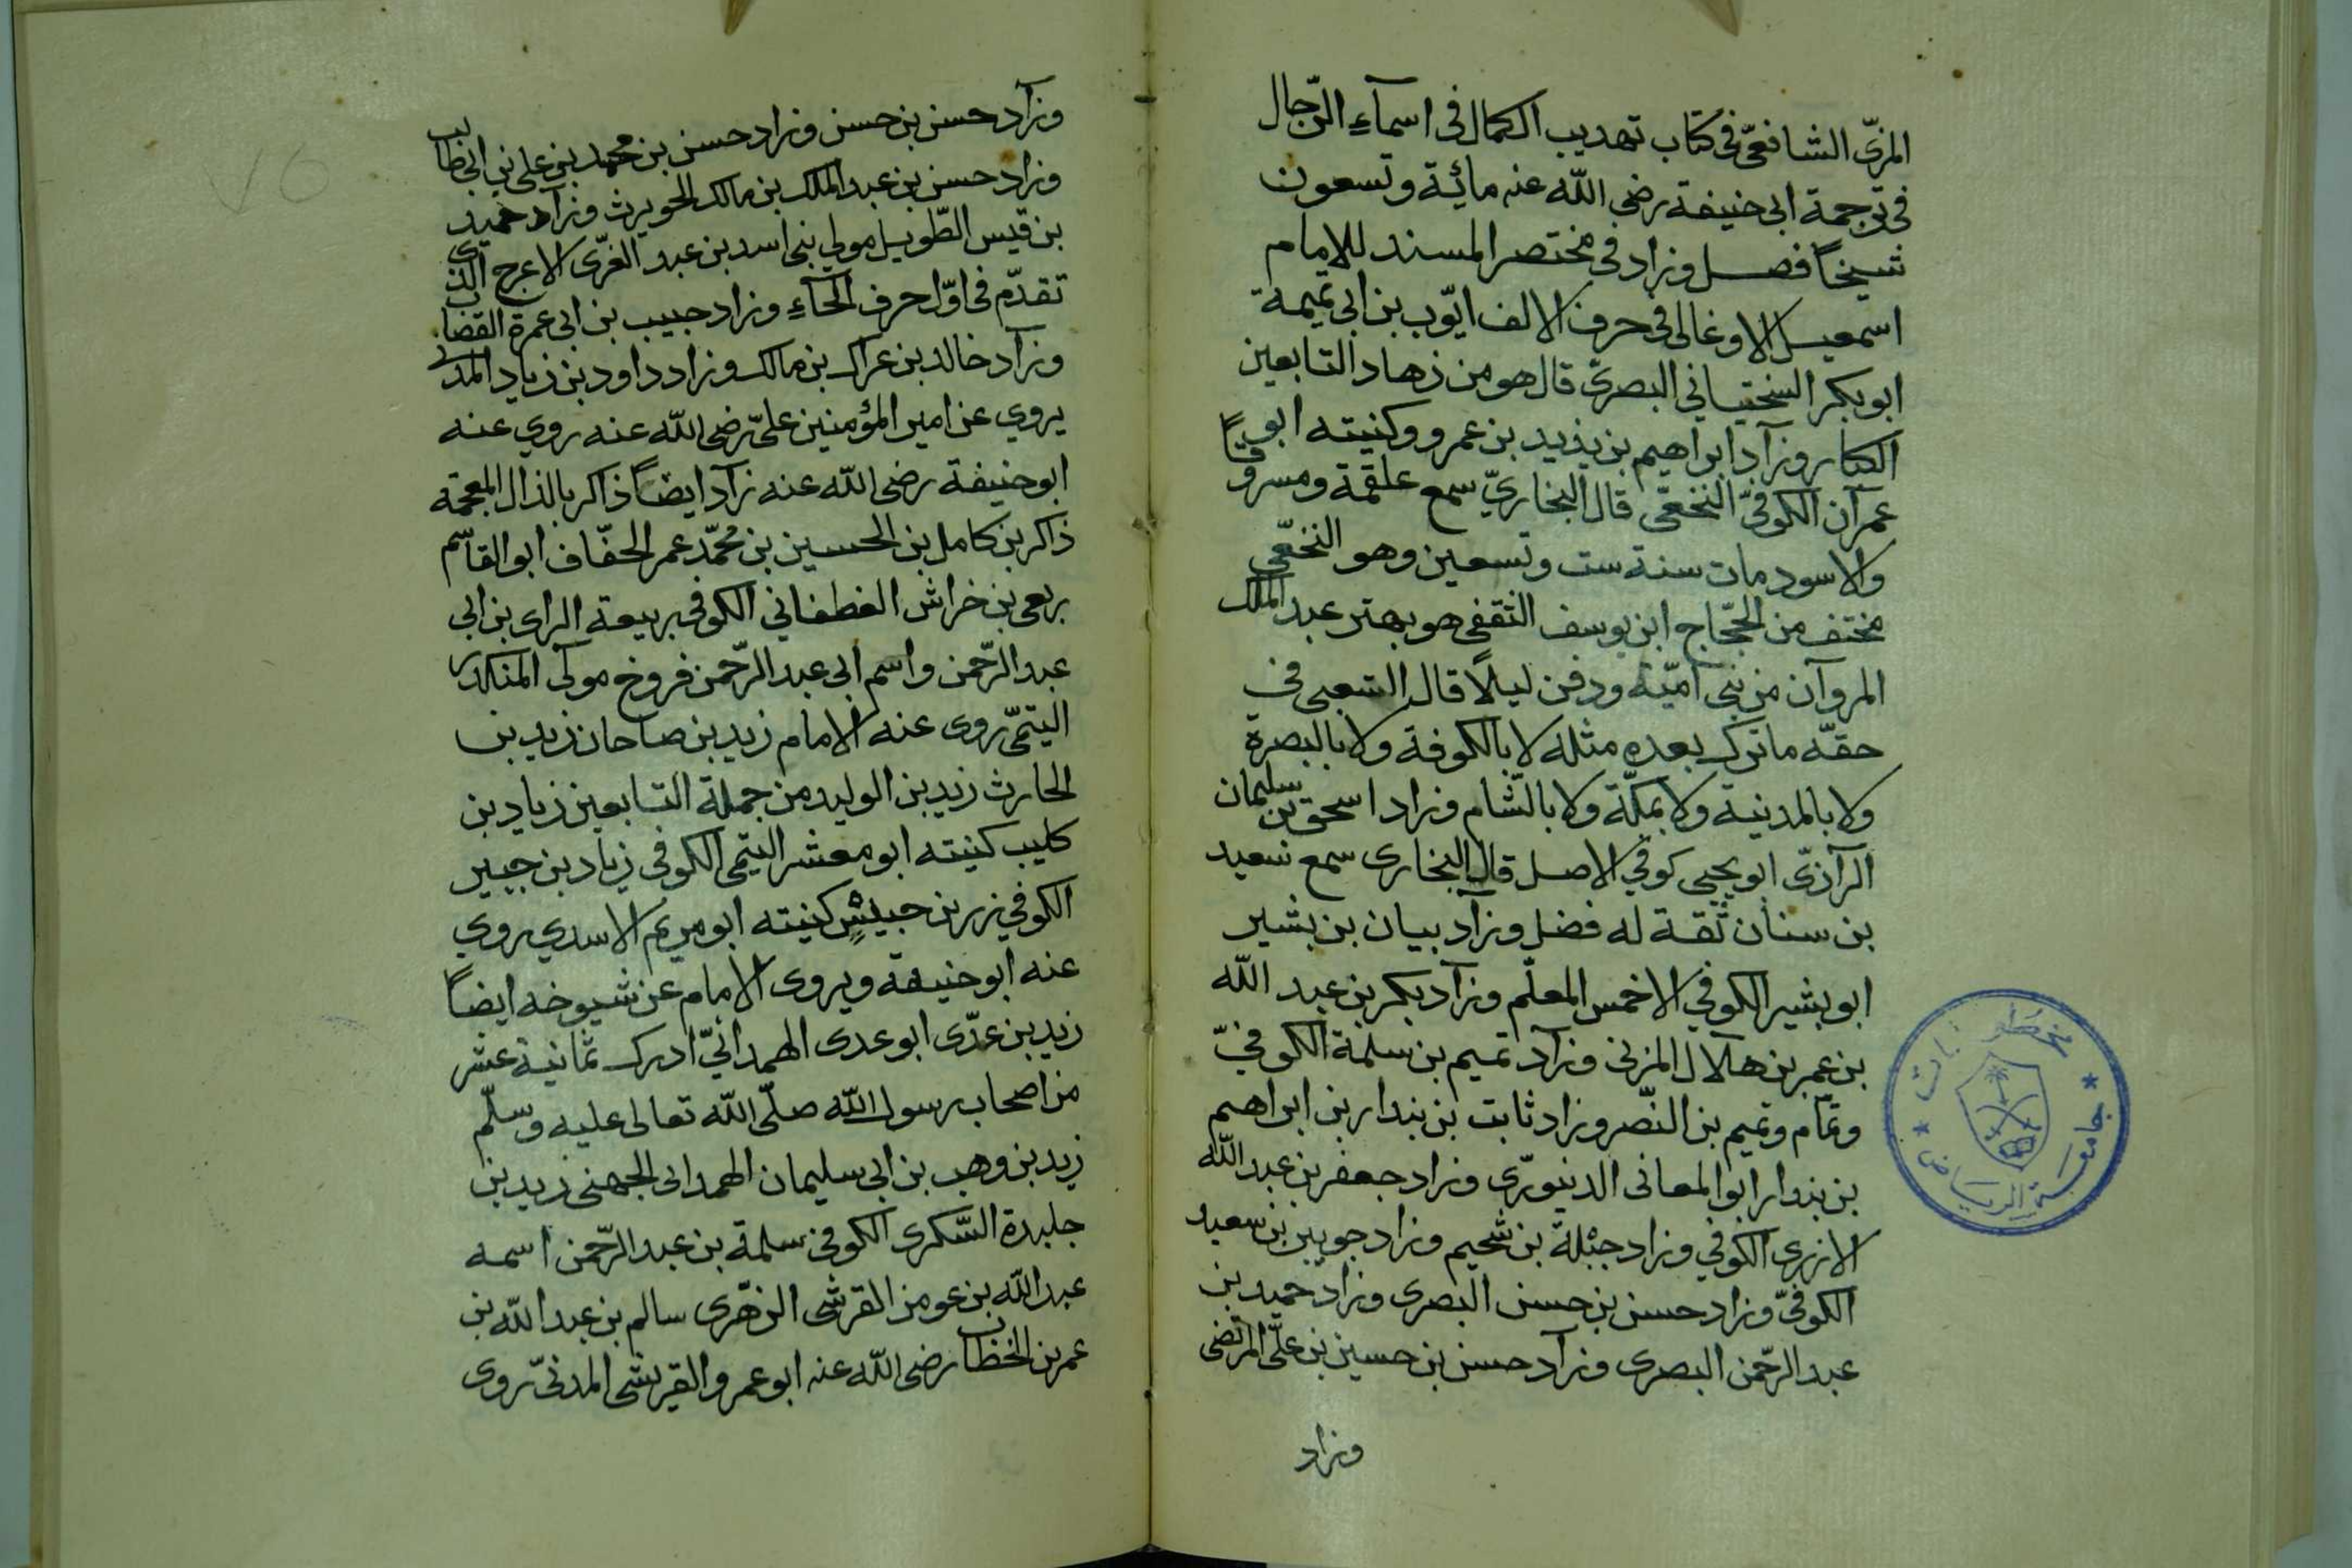 المزىّ الشافعىّ فى كتاب تهديب الكمال فى اسمآء الرّجال
فى ترجمة ابى حنيفة رضى اللّه عنه مائية وتسعون
شيخاً فصل وزاد فى مختصر المسند للامام
اسمعيل الاوغالى فى حرف الالف ايّوب بن ابى تميمة
ابو بكر السختيانى البصرىّ قال هو من زهاد التابعين
الكبار وزآد ابراهيم بن يزيد بن عمرو وكنيته ابو
عمرآن الكوفىّ النخعّى قال البخارىّ سمع علقمة ومسروقاً
والاسود مات سنة ست وتسعين وهو النخعّى
مختف من الحجّاج ابن يوسف الثقفى هو بهتر عبد الملك
المروآن من بنى اميّة ودفن ليلاً قال الشعبى فى
حقّه ما ترك بعده مثله لا بالكوفة ولا بالبصرة
ولا بالمدينة ولا بمكّة ولا بالشّام وزاد اسحق بن سليمان
الرآزىّ ابو يحيى كوفي الاصل قال البخارى سمع سعيد
بن سنان ثقة له فضل وزآد بيان بن بشير
ابو بشير الكوفي الاخمس المعلّم وزآد بكر بن عبد اللّه
بن عمر بن هلآل المزنى وزآد تميم بن سلمة الكوفىّ
وتمّام وتميم بن النّصر وزاد ثابت بن بندار بن ابراهيم
بن بندار ابو المعانى الدينورّى وزاد جعفر بن عبد اللّه
الازرى الكوفي وزاد جبلة بن شحيم وزاد جويبن بن سعيد
الكوفىّ وزاد حسن بن حسن البصرى وزاد حميد بن
عبد الرّحمن البصرى وزآد حسن بن حسين بن علىّ المرتضى
وزاد
مخطوطات
جامعة الرياض
٧٥
وزآد حسن بن حسن وزاد حسن بن محمد بن على بن ابى طالب
وزاد حسن بن عبد الملك بن مالك الحويرث وزآد حميد
بن قيس الطّويل مولى بنى اسد بن عبد العزّى الاعرج الذى
تقدّم فى اوّل حرف الحآء وزاد حبيب بن ابى عمرة القصاب
وزآد خالد بن عراك بن مالك وزاد داود بن زياد المدنى
يروي عن امير المؤمنين علىّ رضى اللّه عنه روي عنه
ابو حنيفة رضى اللّه عنه زآد ايضاً ذاكر بالذال المعجمة
ذاكر بن كامل بن الحسين بن محمّد عمر الحفّاف ابو القاسم
ربعى بن خراش الغطفاني الكوفى ربيعة الراى بن ابى
عبد الرّحمن واسم ابى عبد الرّحمن فروخ مولى المنكدر
التيمّى روى عنه الامام زيد بن صاحان زيد بن
الحارث زيد بن الوليد من جملة التابعين زياد بن
كليب كنيته ابو معشر التيمى الكوفى زياد بن جبير
الكوفي زرين حبيش كنيته ابو مريم الاسدي يروي
عنه ابو حنيفة ويروى الامام عن شيوخه ايضاً
زيد بن عدّى ابو عدى الهمدانىّ ادرك ثمانية عشر
من اصحاب رسول اللّه صلّى اللّه تعالى عليه وسلّم
زيد بن وهب بن ابى سليمان الهمدانى الجهنى زيد بن
جليدة السّكرى الكوفى سلمة بن عبد الرّحمن اسمه
عبد اللّه بن عومن القرشى الزهّرى سالم بن عبد اللّه بن
عمر بن الخطاب رضى اللّه عنه ابو عمرو القريشى المدنىّ روى